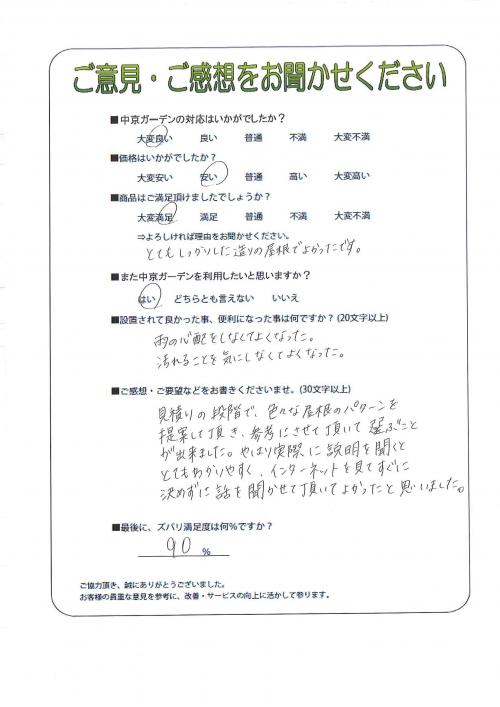 ご意見・ご感想をお聞かせください
■中京ガーデンの対応はいかがでしたか？
大変良い 良い 普通 不満 大変不満
■価格はいかがでしたか？
大変安い 安い 普通 高い 大変高い
■商品はご満足頂けましたでしょうか？
大変満足 満足 普通 不満 大変不満
⇒よろしければ理由をお聞かせください。
とてもしっかりした造りの屋根でよかったです。
■また中京ガーデンを利用したいと思いますか？
はい どちらとも言えない いいえ
■設置されて良かった事、便利になった事は何ですか？(20文字以上)
雨の心配をしなくてよくなった。
汚れることを気にしなくてよくなった。
■ご感想・ご要望などをお書きくださいませ。(30文字以上)
見積りの段階で、色々な屋根のパターンを
提案して頂き、参考にさせて頂いて選ぶこと
が出来ました。やはり実際に説明を聞くと
とてもわかりやすく、インターネットを見てすぐに
決めずに話を聞かせて頂いてよかったと思いました。
■最後に、ズバリ満足度は何%ですか？
90 %
ご協力頂き、誠にありがとうございました。
お客様の貴重な意見を参考に、改善・サービスの向上に活かして参ります。